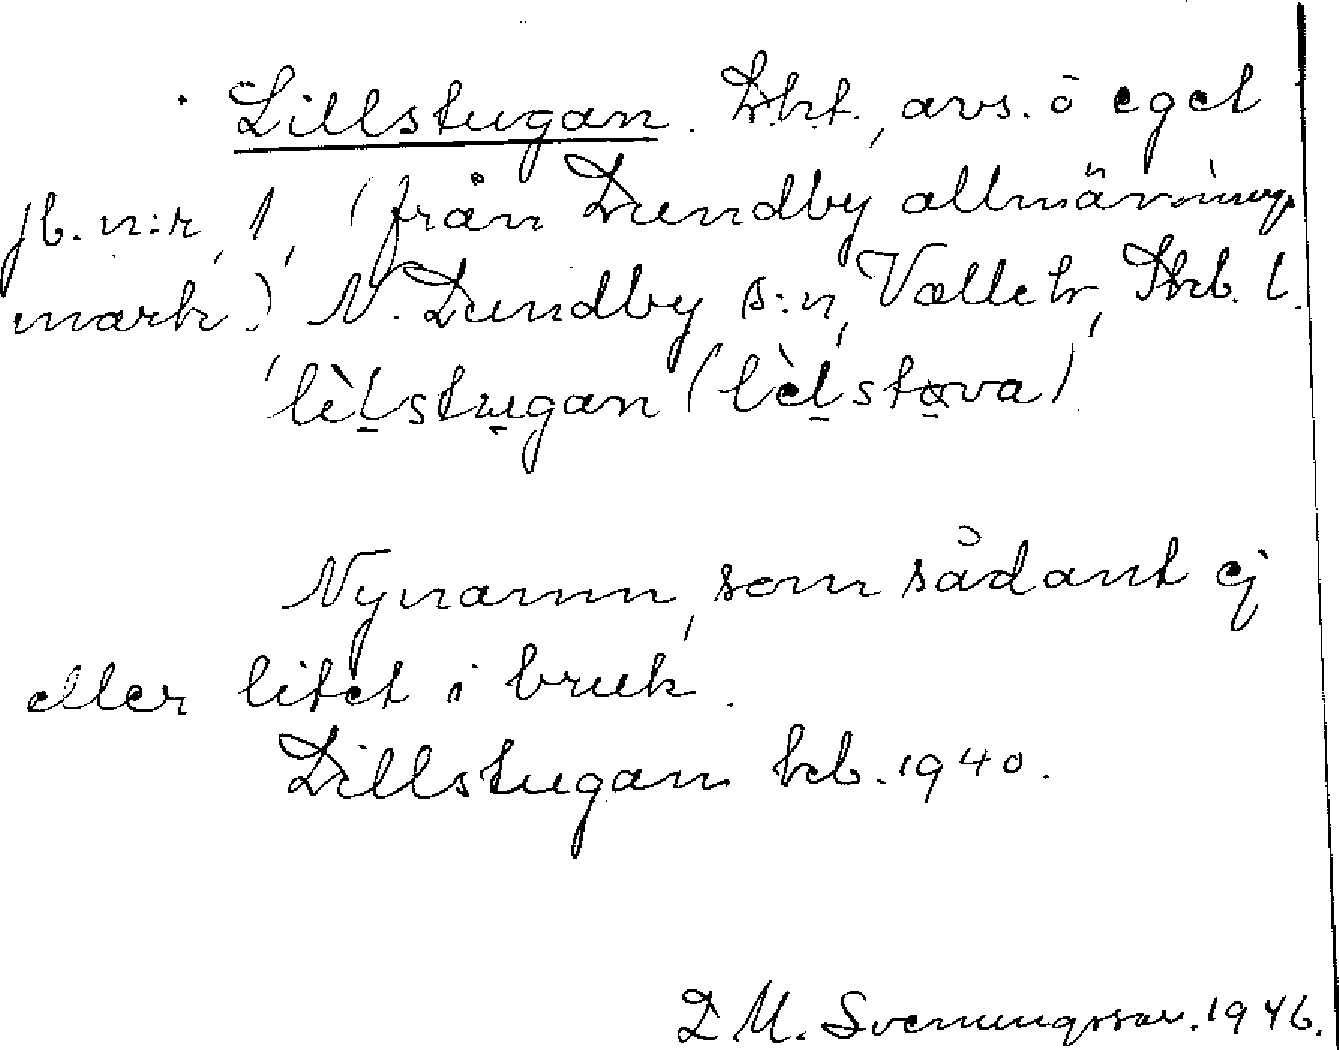 Lillstugan. Lht., avs. o eget
jb. n:r 1, (från Lundby allmännings
mark.) N. Lundby s:n, Valle hr, Skb. l.
lèlstugan (lèlstova)
Nynamn, som sådant ej
eller litet i bruk.
Lillstugan krb. 1940.
L M. Svenungsson. 1946.